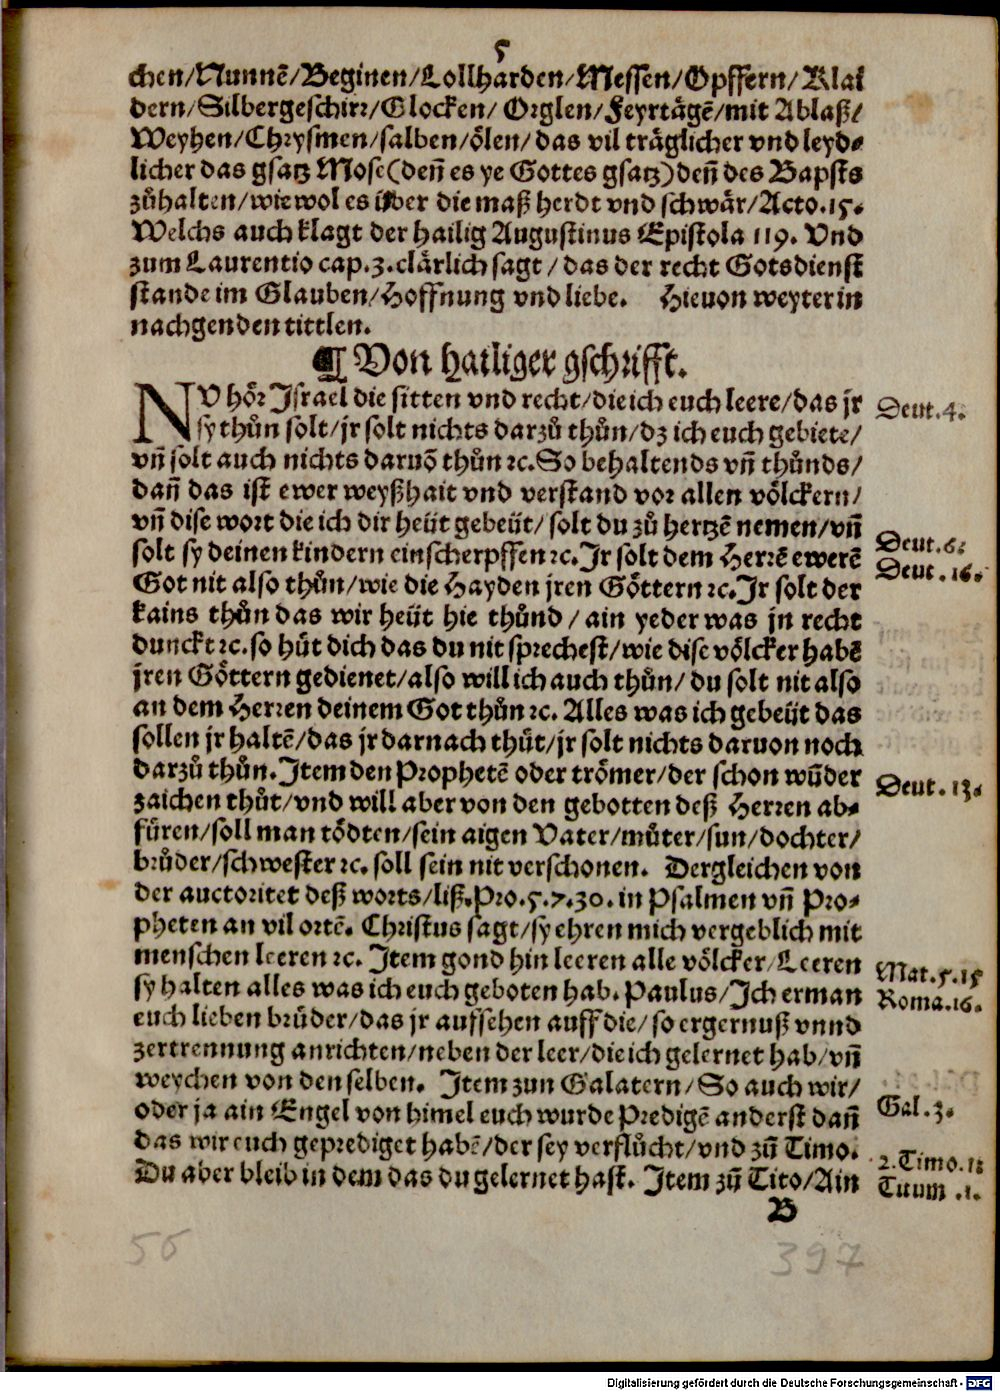 5
chen/Nunnẽ/Beginen/Lollharden/Messen/Opffern/Klai
dern/Silbergeschirr/Glocken/ Orglen/Feyrtågẽ/mit Ablaß/
Weyhen/Chrysmen/salben/ölen/ das vil träglicher vnd leyd⸗
licher das gsatz Mose(deñ es ye Gottes gsatz)deñ des Bapsts
zůhalten/wiewol es über die maß herdt vnd schwår/Acto.15.
Welchs auch klagt der hailig Augustinus Epistola 119. Vnd
zum Laurentio cap.3.clårlich sagt/ das der recht Gotsdienst
stande im Glauben/Hoffnung vnd liebe. Hieuon weyter in
nachgenden tittlen.
¶ Von hailiger gschrifft.
NV hôr Israel die sitten vnd recht/die ich euch leere/das jr
sy thůn solt/jr solt nichts darzů thůn/dz ich euch gebiete/
vñ solt auch nichts daruõ thůn ꝛc.So behaltends vñ thůnds/
dañ das ist ewer weyßhait vnd verstand vor allen völckern/
vñ dise wort die ich dir heüt gebeüt/ solt du zů hertzẽ nemen/vñ
solt sy deinen kindern einscherpffen ꝛc.Jr solt dem Herrẽ ewerẽ
Got nit also thůn/wie die Hayden jren Göttern ꝛc.Jr solt der
kains thůn das wir heüt hie thůnd/ ain yeder was jn recht
dunckt ꝛc.so hüt dich das du nit sprechest/wie dise völcker habẽ
jren Göttern gedienet/also will ich auch thůn/ du solt nit also
an dem Herren deinem Got thůn ꝛc. Alles was ich gebeüt das
sollen jr haltẽ/das jr darnach thůt/jr solt nichts daruon noch
darzů thůn.Item den Prophetẽ oder trömer/der schon wũder
zaichen thůt/vnd will aber von den gebotten deß Herren ab⸗
füren/soll man tödten/sein aigen Vater/můter/sun/dochter/
brůder/schwester ꝛc. soll sein nit verschonen. Dergleichen von
der auctoritet deß worts/liß.Pro.5.7.30. in Psalmen vñ Pro⸗
pheten an vil ortẽ. Christus sagt/sy ehren mich vergeblich mit
menschen leeren ꝛc. Item gond hin leeren alle völcker/Leeren
sy halten alles was ich euch geboten hab. Paulus/Ich erman
euch lieben brüder/das jr aufsehen auff die/ so ergernuß vnnd
zertrennung anrichten/neben der leer/die ich gelernet hab/vñ
weychen von den selben. Item zun Galatern/So auch wir/
oder ja ain Engel von himel euch wurde Predigẽ anderst dañ
das wir euch geprediget habẽ/der sey verflůcht/vnd zũ Timo.
Du aber bleib in dem das du gelernet hast. Item zũ Tito/Ain
B
Deut.4.
Deut.6.
Deut.16.
Deut.13.
Mat.5.15
Roma.16.
Gal.3.
2.Timo.
Tituum .1.
56
397
Digitalisierung gefördert durch die Deutsche Forschungsgemeinschaft - DFG